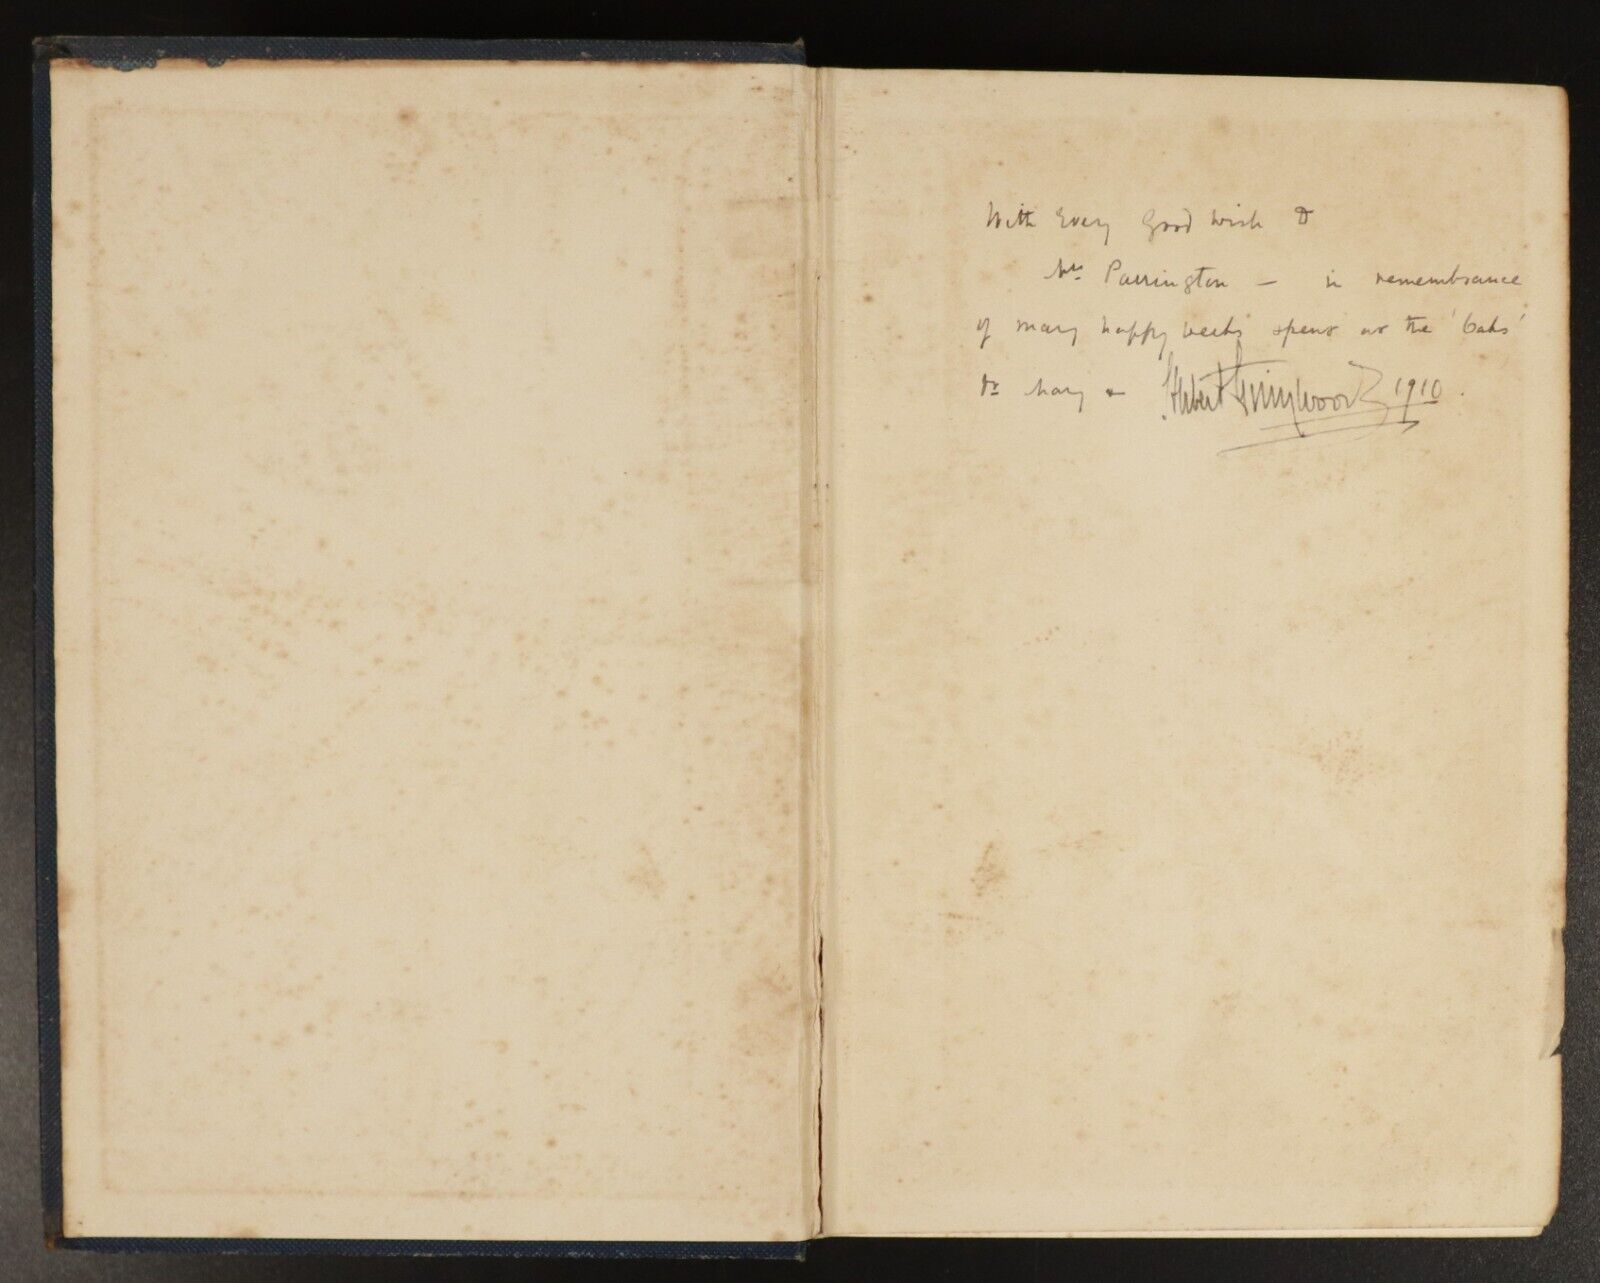 With Every Good Wish to
Mrs. Parrington — in remembrance
of many happy weeks spent at the 'Oaks'
Mary & Hubert Grimwood 1910.